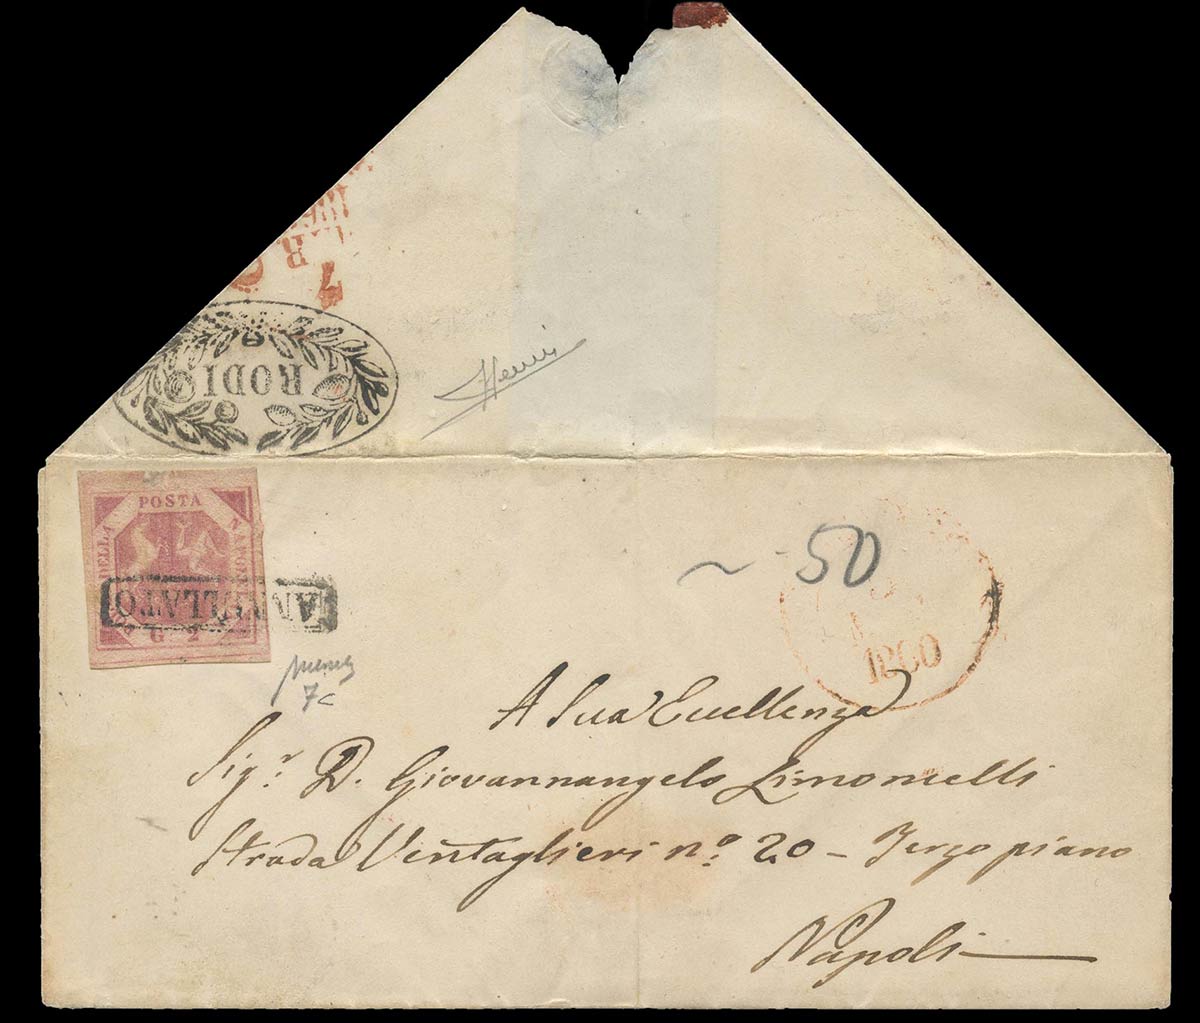 RODI
POSTA
DELLA
G 2
ANNULLATO
7c
50
1860
A Sua Eccellenza
Sig.r D. Giovannangelo Limoncelli
Strada Ventaglieri n.o 20 – Terzo piano
Napoli